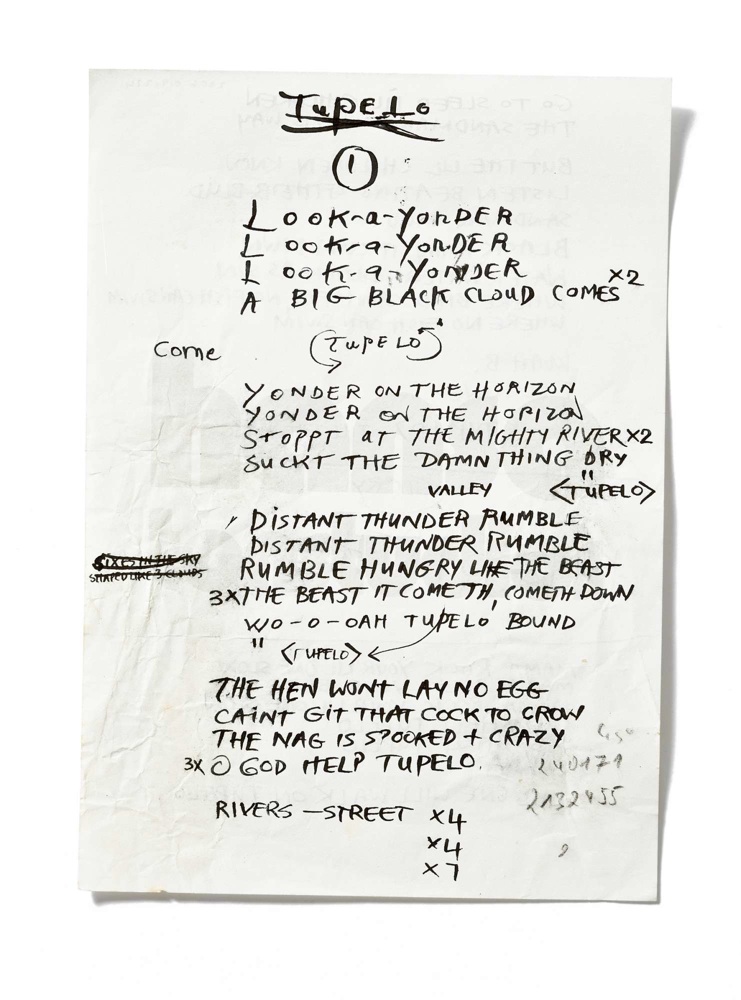 TUPELO
1
LOOK-a-YONDER
LOOK-a-YONDER
LOOK-a-YONDER
A BIG BLACK CLOUD COMES x2
Come (TUPELO)
YONDER ON THE HORIZON
YONDER ON THE HORIZON
STOPPT aT THE MIGHTY RIVER x2
SUCKT THE DAMN THING DRY
VALLEY <TUPELO>
DISTANT THUNDER RUMBLE
DISTANT THUNDER RUMBLE
RUMBLE HUNGRY LIKE THE BEAST
SHAPED LIKE 3 CLOUDS
3X THE BEAST IT COMETH, COMETH DOWN
WO-O-OAH TUPELO BOUND
" <TUPELO>
THE HEN WONT LAY NO EGG
CAINT GIT THAT COCK TO CROW
THE NAG IS SPOOKED + CRAZY
3X O GOD HELP TUPELO.
240171
2132455
RIVERS - STREET x4
x4
x7